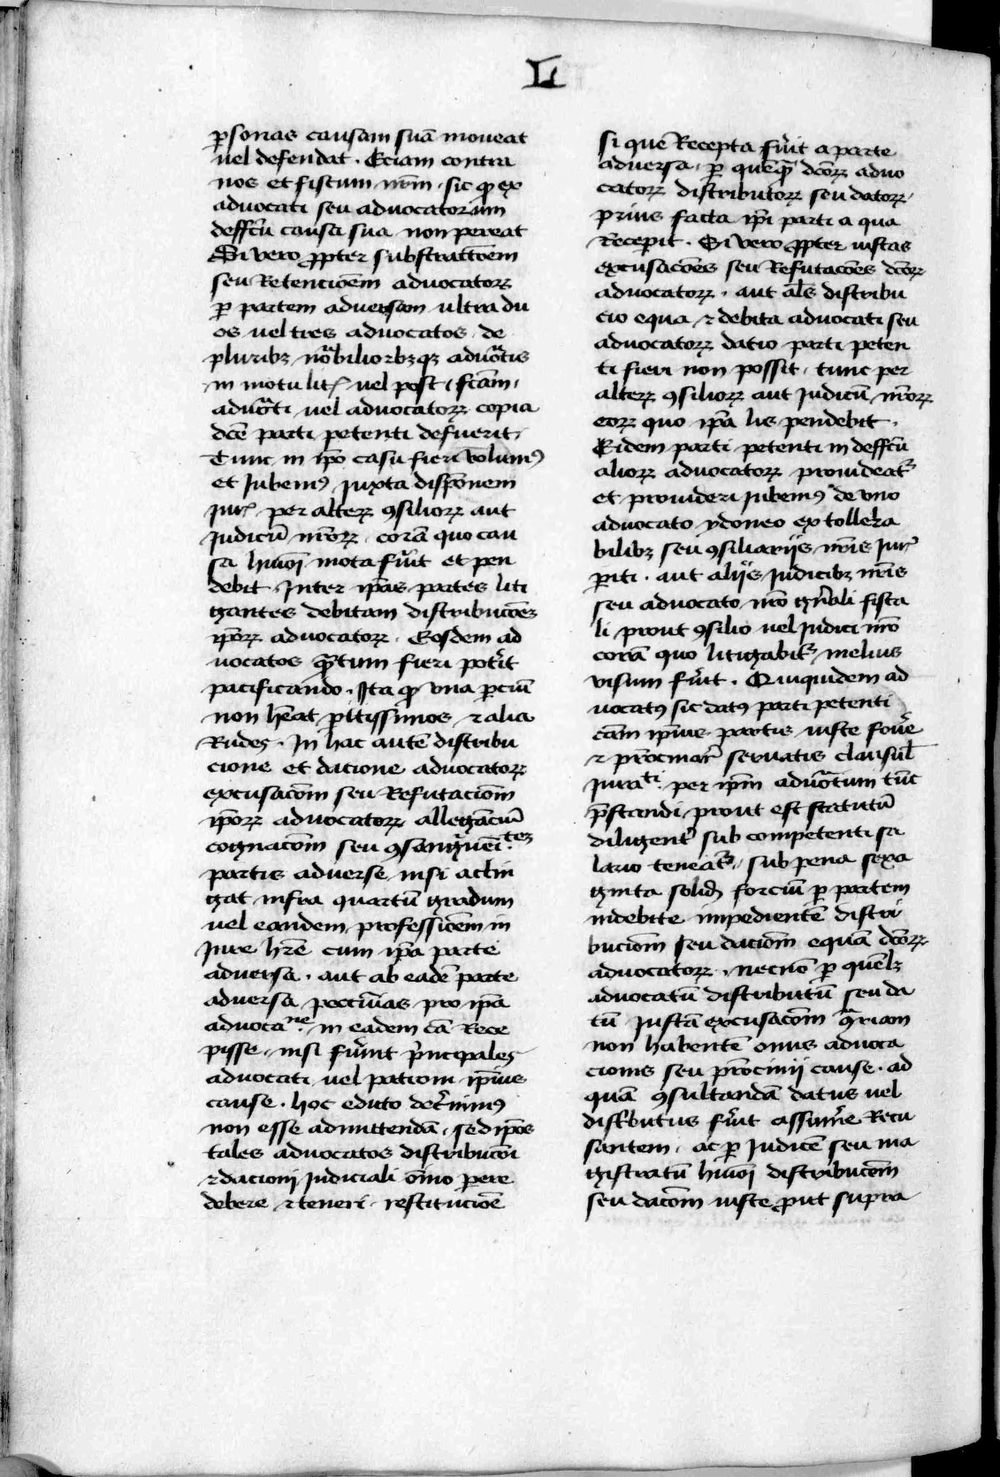 L
p̱sonas causam suā moueat
uel defendat · Eciam contra
nos et fiscum nrm̄ · sic ꝙ ex
advocati seu advocatorum
deffc̄u causa sua non pereat
Si vero ꝓpter substractōem
seu Retencioēm advocatoꝝ
ꝑ partem adversam ultra du
os uel tres advocatos de
pluribꝫ nōbilioribꝫqꝫ advōtis
in motu lit uel post · fcām ·
advōti uel advocatoꝝ copia
dc̄e parti petenti defuerit ·
Tunc in ip̄o casu fieri volumꝰ
et Iubemꝰ Iuxta disp̄onem
Iur̄ per alteꝝ ꝯsilioꝝ aut
Iudicū nr̄oꝝ · corā quo cau
sa hmōi mota fu̇it et pen
debit Inter ip̄as partes liti
gantes debitam distribucōeꝫ
ip̄oꝝ advocatoꝝ · Eosdem ad
uocatos q̄ntum fieri pot̄it
pacificando · Ita ꝙ vna ꝑciū
non hēat pitissimos ⁊ alia
Rudes · In hac autē distribu
cione et dacione advocatoꝝ
excusacōm seu Refutaciom̄
ip̄oꝝ advocatoꝝ allegāciū
cognacōm seu ꝯsanguīei.teꝫ
partis adverse nisi actin
gat infra quartū gradum
uel eandem professioēm in
Iure hr̄e cum ip̄a parte
adversa · aut ab eadē parte
adversa pecc̄uias pro ip̄a
advoca.ne in eadem cā Rece
pisse · nisi fu̇int p̄ncipales
advocati uel patroni ip̄ius
cause · hoc edicto dec̄nimꝰ
non esse admittendā · sed ip̄os
tales advocatos distribucōi
⁊ dacioni Iudiciali oīno pere
debere ⁊ teneri · restitucioē
si quē Recepta fu̇it a parte
adversa · ꝑ quēqꝫ dc̄oꝝ advo
catoꝝ distributoꝝ seu datoꝝ ·
prius facta ip̄i parti a qua
Receperit · Si vero ꝓpter iustas
excusacōes seu Refutacōes dc̄oꝝ
advocatoꝝ · aut al̄s distribu
cio equa ⁊ debita advocati seu
advocatoꝝ datio parti peten
ti fieri non possit · tunc per
alteꝝ ꝯsilioꝝ aut Iudicū nr̄oꝝ
eoꝝ quo ip̄a lis pendebit ·
Eidem parti petenti in deffc̄u
alioꝝ advocatoꝝ prouideat̄
et prouideri Iubemꝰ de vno
advocato ydoneo ex tollera
bilibꝫ seu ꝯsiliariis nr̄is Iur̄
ꝑiti · aut aliis Iudicibꝫ nr̄is
seu advocato nr̄o gn̄ali fisca
li prout ꝯsilio uel Iudici nr̄o
corā quo litigabit̄ melius
visum fu̇it · Quiquidem ad
uocatꝰ sic datꝰ parti petenti
cām ip̄ius partis iuste fouē
⁊ procinar̄ seruatis clausul̄
Iurati per ip̄m advōtum tūc
p̄standi prout est statutū
diligent̄ sub competenti sa
lario teneat̄ · sub pena sexa
ginta solid forciū ꝑ partem
indebite impedientē distri
buciom̄ seu daciom̄ equā dc̄oꝝ
advocatoꝝ · necnō ꝑ quēlꝫ
advocatū distributū seu da
tū Iustā excusacōm q̄riam
non habentē onus advoca
cionis seu procinij cause · ad
quā ꝯsultandā datus uel
distributus fu̇it assum̄e Recu
santem · ac ꝑ Iudicē seu ma
gistratū hmōi distribucōm
seu dacōm iuste ꝓut supra